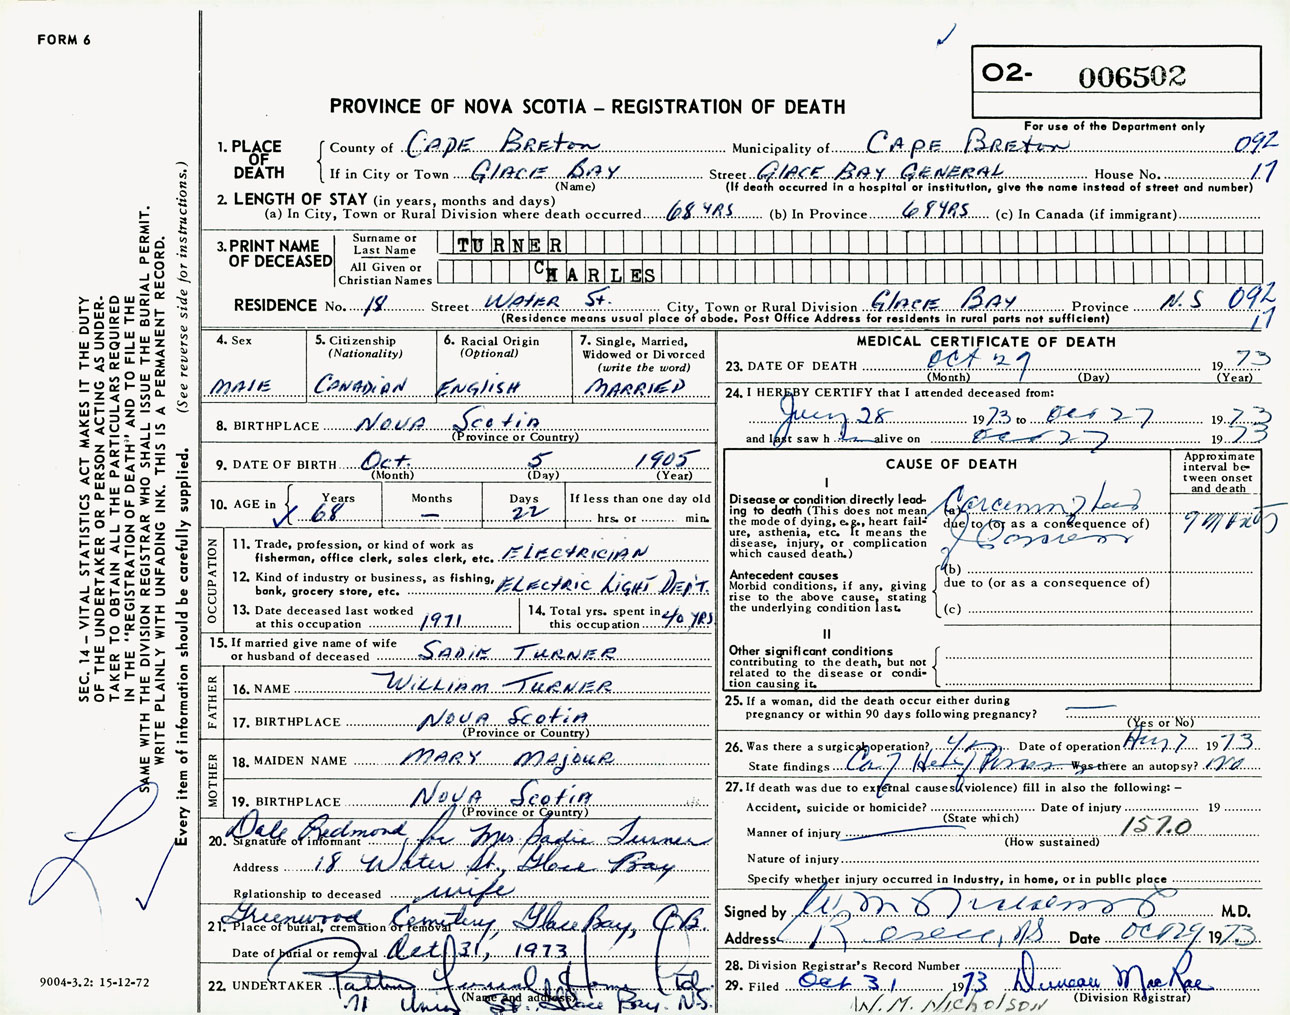 FORM 6
O2- 006502
PROVINCE OF NOVA SCOTIA – REGISTRATION OF DEATH
For use of the Department only
1. PLACE OF DEATH
County of CAPE BRETON Municipality of CAPE BRETON 092
If in City or Town GLACE BAY Street GLACE BAY GENERAL House No. 17
(Name) (If death occurred in a hospital or institution, give the name instead of street and number)
2. LENGTH OF STAY (in years, months and days)
(a) In City, Town or Rural Division where death occurred 68 YRS (b) In Province 68 YRS (c) In Canada (if immigrant)
3. PRINT NAME OF DECEASED
Surname or Last Name TURNER
All Given or Christian Names CHARLES
RESIDENCE No. 18 Street WATER St. City, Town or Rural Division GLACE BAY Province N.S 092
(Residence means usual place of abode. Post Office Address for residents in rural parts not sufficient) 17
4. Sex MALE
5. Citizenship (Nationality) CANADIAN
6. Racial Origin (Optional) ENGLISH
7. Single, Married, Widowed or Divorced (write the word) MARRIED
8. BIRTHPLACE NOVA SCOTIA
(Province or Country)
9. DATE OF BIRTH Oct. 5 1905
(Month) (Day) (Year)
10. AGE in Years 68 Months — Days 22 If less than one day old
hrs. or min.
OCCUPATION
11. Trade, profession, or kind of work as fisherman, office clerk, sales clerk, etc. ELECTRICIAN
12. Kind of industry or business, as fishing, bank, grocery store, etc. ELECTRIC LIGHT DEP'T.
13. Date deceased last worked at this occupation 1971
14. Total yrs. spent in this occupation 40 YRS
15. If married give name of wife or husband of deceased SADIE TURNER
FATHER
16. NAME WILLIAM TURNER
17. BIRTHPLACE NOVA SCOTIA
(Province or Country)
MOTHER
18. MAIDEN NAME MARY MAJOUR
19. BIRTHPLACE NOVA SCOTIA
(Province or Country)
20. Signature of informant Dale Redmond for Mrs Sadie Turner
Address 18 Water St., Glace Bay
Relationship to deceased wife
21. Place of burial, cremation or removal Greenwood Cemetery, Glace Bay, C.B.
Date of burial or removal Oct 31, 1973
22. UNDERTAKER Funeral Home Ltd.
(Name and address)
71 Union St. Glace Bay. N.S.
MEDICAL CERTIFICATE OF DEATH
23. DATE OF DEATH OCT 29 1973
(Month) (Day) (Year)
24. I HEREBY CERTIFY that I attended deceased from:
28 1973 to Oct 27 1973
and last saw h alive on Oct 27 1973
CAUSE OF DEATH
Approximate interval between onset and death
I
Disease or condition directly leading to death (This does not mean the mode of dying, e.g., heart failure, asthenia, etc. It means the disease, injury, or complication which caused death.)
(a) Carcinoma Head
due to (or as a consequence of)
of Pancreas
Antecedent causes
Morbid conditions, if any, giving rise to the above cause, stating the underlying condition last.
(b)
due to (or as a consequence of)
(c)
II
Other significant conditions contributing to the death, but not related to the disease or condition causing it.
25. If a woman, did the death occur either during pregnancy or within 90 days following pregnancy? —
(Yes or No)
26. Was there a surgical operation? yes Date of operation Aug 7 1973
State findings Was there an autopsy? no
27. If death was due to external causes (violence) fill in also the following: –
Accident, suicide or homicide? Date of injury 19
(State which)
Manner of injury 157.0
(How sustained)
Nature of injury
Specify whether injury occurred in industry, in home, or in public place
Signed by M.D.
Address Date OCT 29 1973
28. Division Registrar's Record Number
29. Filed Oct 31 1973 Duncan MacRae
(Division Registrar)
W. M. NICHOLSON
SEC. 14 – VITAL STATISTICS ACT MAKES IT THE DUTY
OF THE UNDERTAKER OR PERSON ACTING AS UNDER-
TAKER TO OBTAIN ALL THE PARTICULARS REQUIRED
IN THE "REGISTRATION OF DEATH" AND TO FILE THE
SAME WITH THE DIVISION REGISTRAR WHO SHALL ISSUE THE BURIAL PERMIT.
WRITE PLAINLY WITH UNFADING INK. THIS IS A PERMANENT RECORD.
Every item of information should be carefully supplied. (See reverse side for instructions.)
9004-3.2: 15-12-72